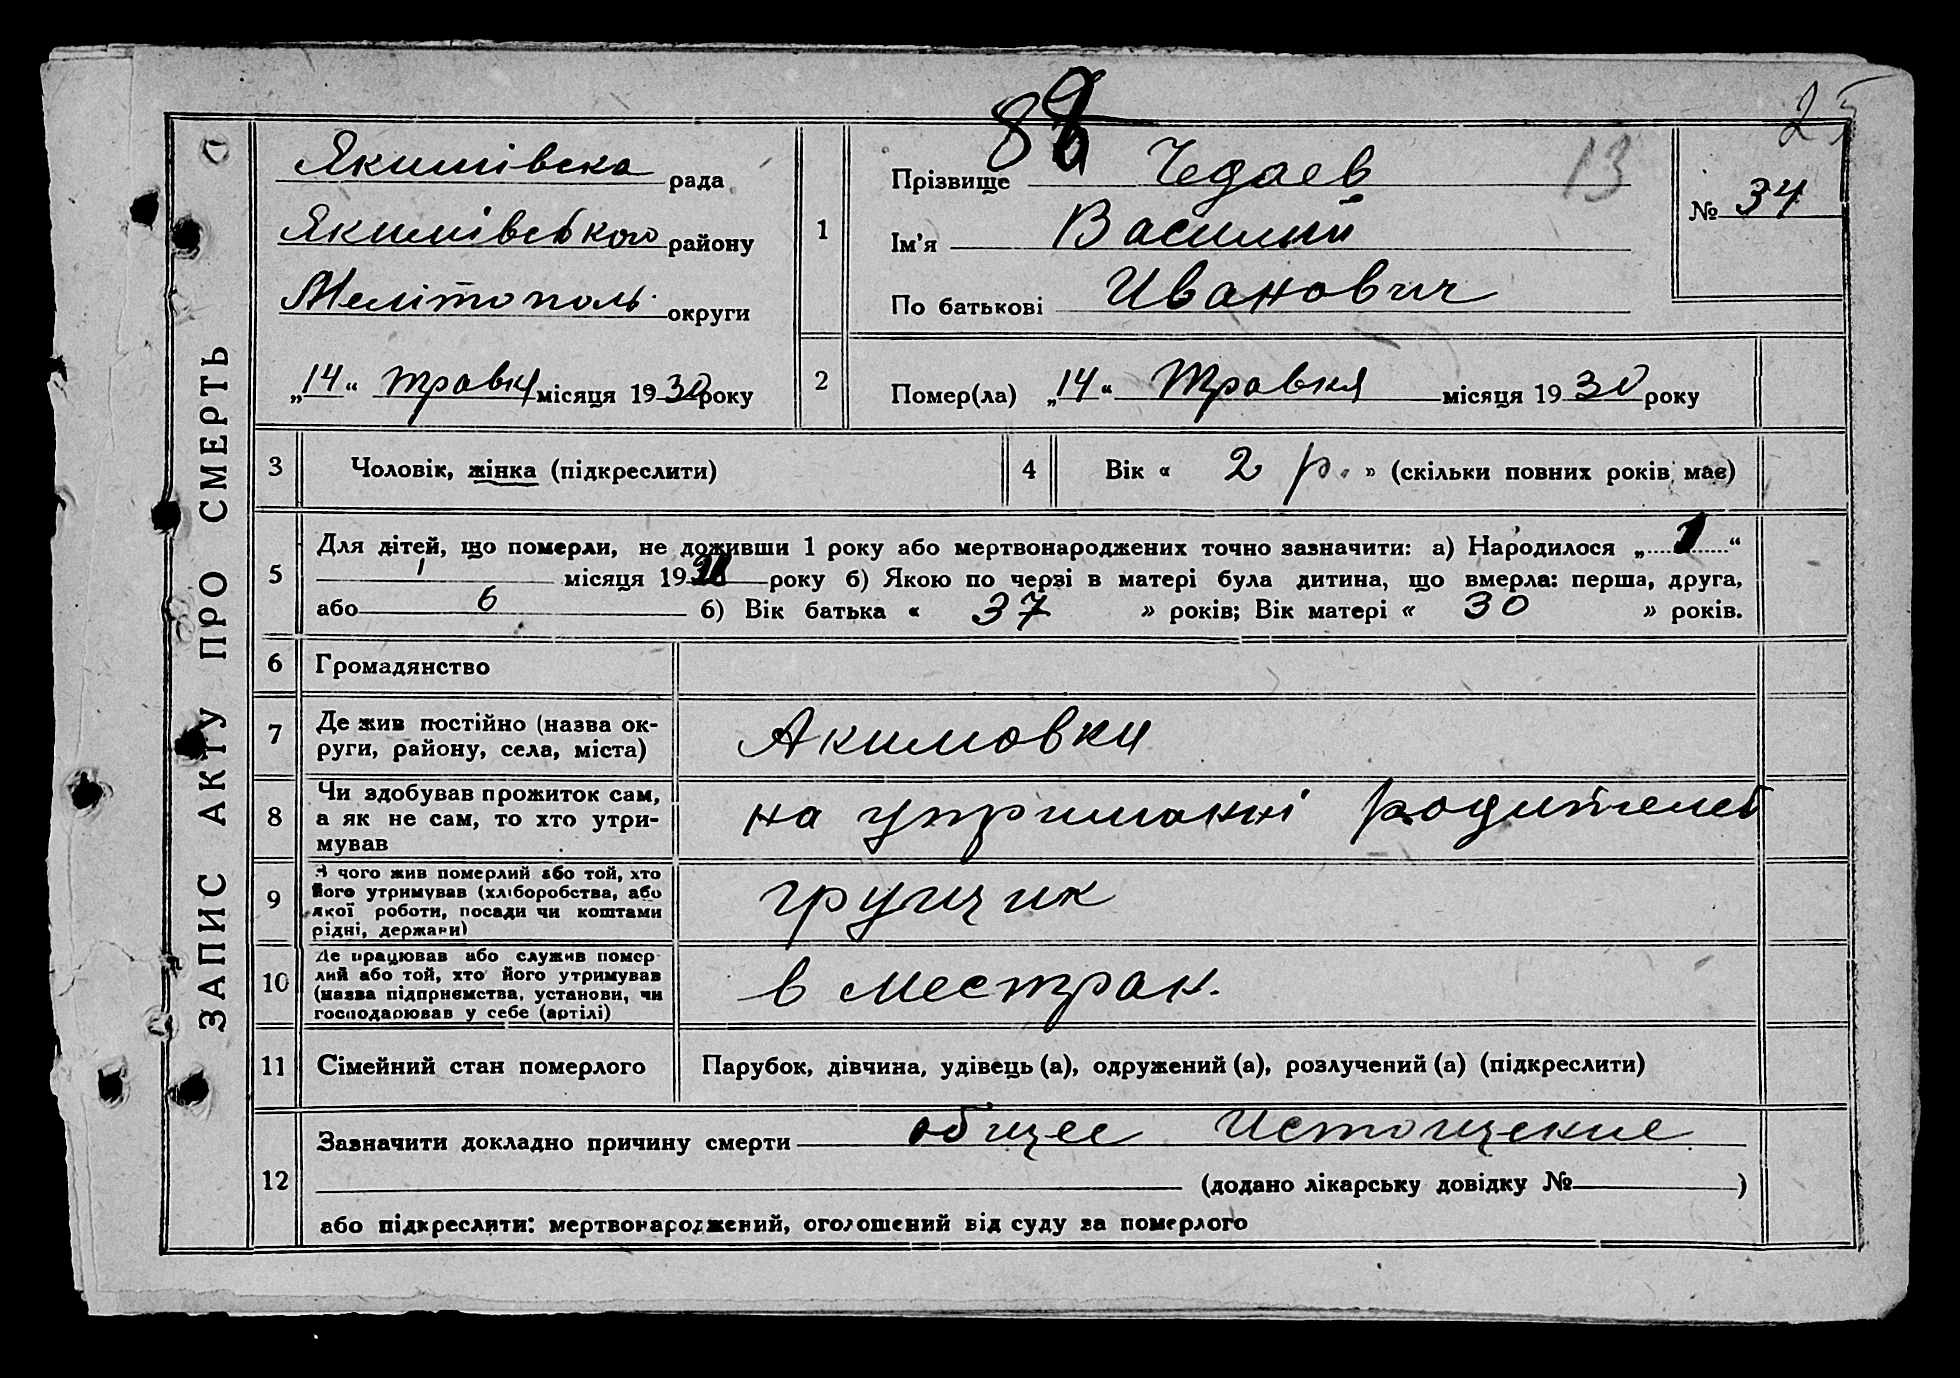 88
25
ЗАПИС АКТУ ПРО СМЕРТЬ
Якимівска рада
Якимівського району
Мелітополь. округи
„14“ травня місяця 1930 року
1
Прізвище Чедаев
13
Ім'я Василий
По батькові Иванович
№ 34
2
Помер(ла) „14“ Травня місяця 1930 року
3
Чоловік, жінка (підкреслити)
4
Вік « 2 р. » (скільки повних років має)
5
Для дітей, що померли, не доживши 1 року або мертвонароджених точно зазначити: а) Народилося „1“
1 місяця 1928 року б) Якою по черзі в матері була дитина, що вмерла: перша, друга,
або 6 б) Вік батька « 37 » років; Вік матері « 30 » років.
6
Громадянство
7
Де жив постійно (назва ок-
руги, району, села, міста)
Акимовка
8
Чи здобував прожиток сам,
а як не сам, то хто утри-
мував
на утриманні родителей
9
З чого жив померлий або той, хто
його утримував (хліборобства, або
якої роботи, посади чи коштами
рідні, держави)
грущик
10
Де працював або служив помер-
лий або той, хто його утримував
(назва підприємства, установи, чи
господарював у себе (артілі)
в местран.
11
Сімейний стан померлого
Парубок, дівчина, удівець (а), одружений (а), розлучений (а) (підкреслити)
12
Зазначити докладно причину смерти общее Истощение
(додано лікарську довідку № )
або підкреслити: мертвонароджений, оголошений від суду за померлого